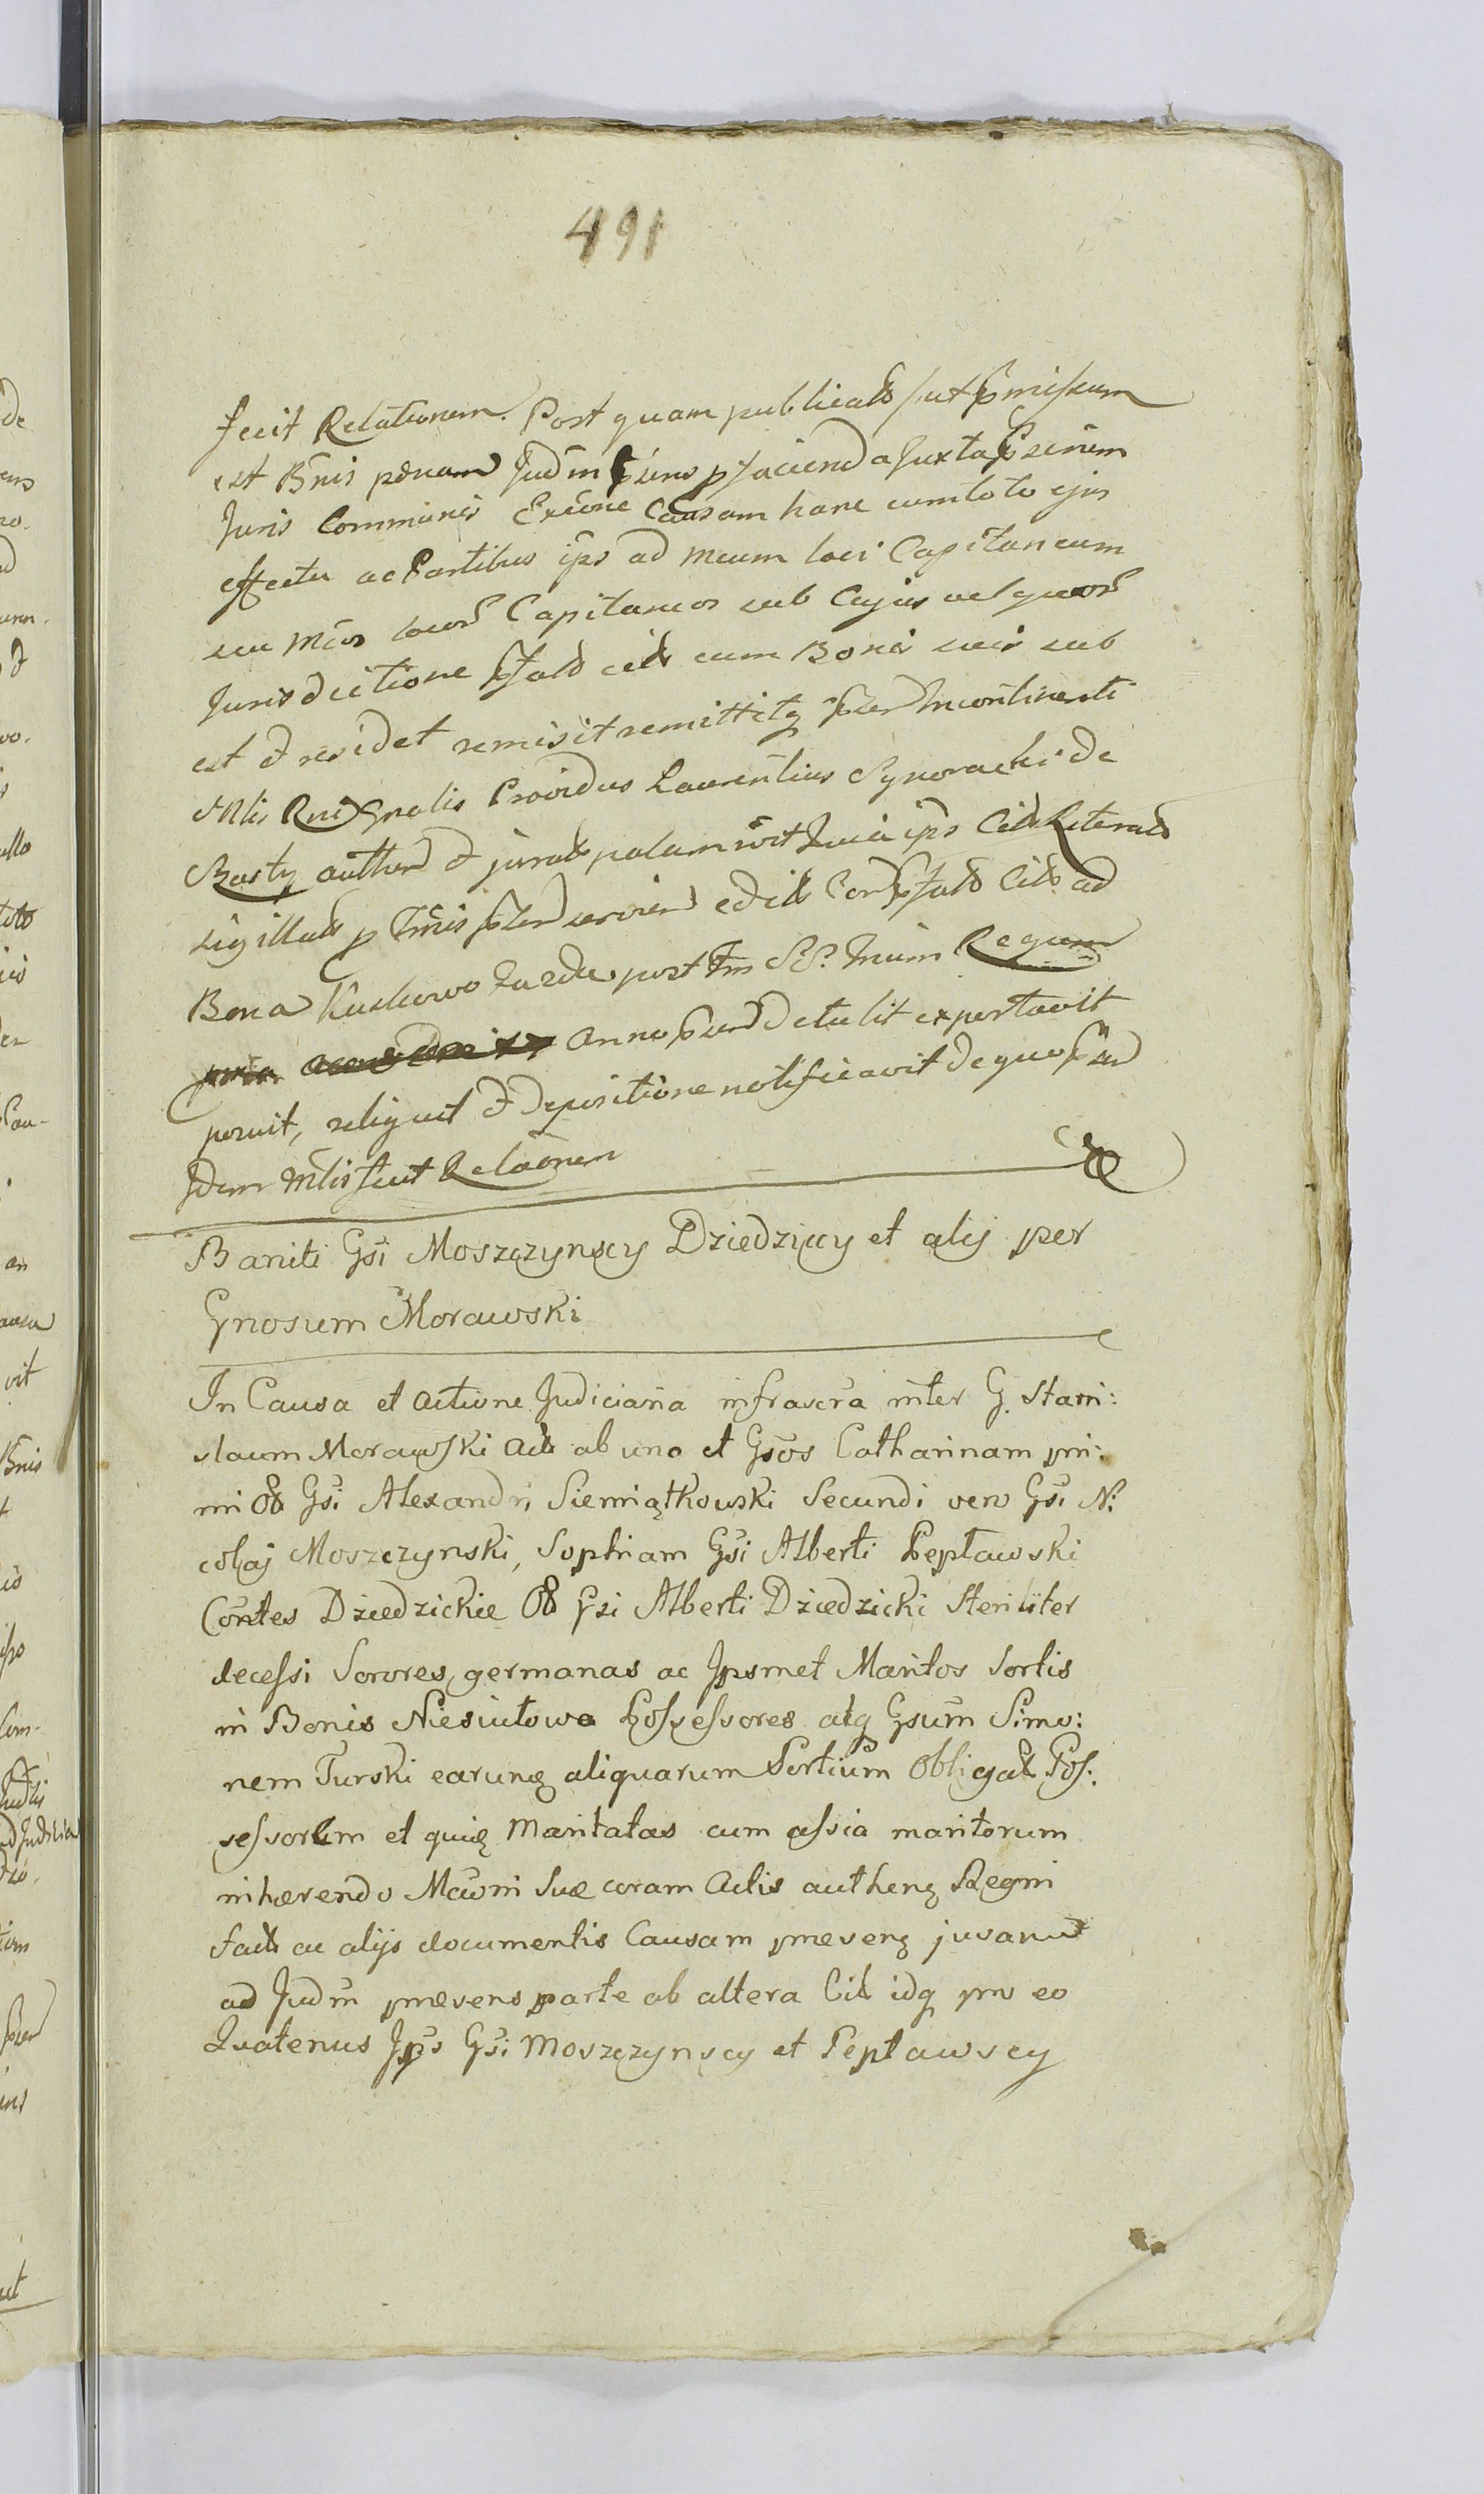 491
fecit Relationem. Post quam publicato sut pmissum
est Bnis pœnam Judm psens p faciend a Juxta pscrium
Juris Communis Exeone Causam hanc cum toto ejus
effectu ac Partibus ips ad meum loci Capitaneum
seu mcos locor Capitaneos sub Cujus vel quor
Jurisdictione pfato cito cum Bonis suis sub
est & residet remisit remittitq pzen Incontinenti
Mlis Rni Gnalis Providus Laurentius Synoracki de
Rusty author & jurato palam rcvit Quia ips Cito Literas
sigillato p Tmis pzen servien edito Con pfato Cito ad
Bona Kuchowo post Tm SS. Trium Regum
anno pzen detulit exportavit
posuit, reliquit & depositione notificavit de quo pzen
Idem Mlis fecit Relaonem
Baniti Gsi Moszczynscy Dziedziccy et alij per
Gnosum Morawski
In Causa et actione Judiciaria infrascra inter G. Stani:
slaum Morawski Acto ab uno et Gsos Catharinam pri:
mi Ol Gsi Alexandri Siemiątkowski Secundi vero Gsi Ni
colaj Moszczynski, Sophiam Gsi Alberti Peptawski
Contes Dziedzickie Ol Gsi Alberti Dziedzicki Steriliter
decessi Sorores germanas ac Ipsmet Maritos Sortis
in Bonis Niesiułowo Possessores atq Gsum Simo:
nem Turski earunq aliquarum Sortium Obligat Pos:
sessorem et quiq Maritatas cum assia maritorum
inhærendo Mawni Suæ coram Actis autheng Regni
facto ac alijs documentis Causam præseng juvanu
ad Judm præsens parte ab altera Cit idq pro eo
Quatenus Ips Gsi Moszczynscy et Peptawscy